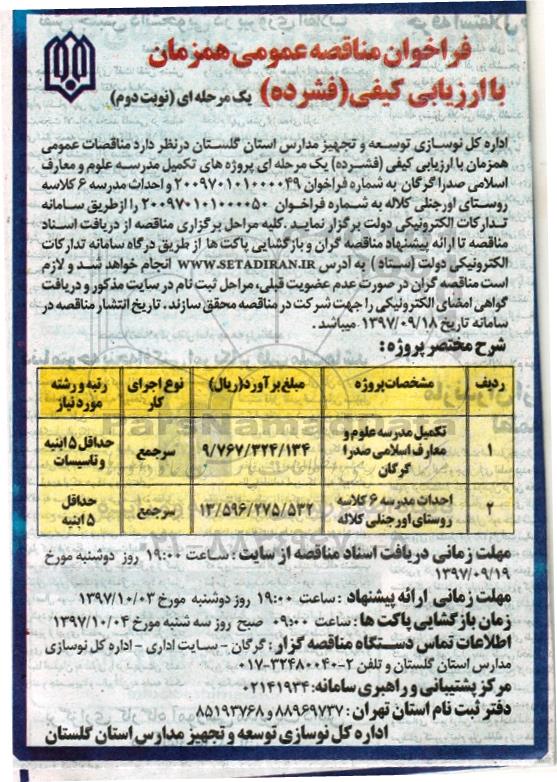 فراخوان مناقصه عمومی همزمان
با ارزیابی کیفی (فشرده) یک مرحله ای (نوبت دوم)
اداره کل نوسازی توسعه و تجهیز مدارس استان گلستان درنظر دارد مناقصات عمومی
همزمان با ارزیابی کیفی (فشرده) یک مرحله ای پروژه های تکمیل مدرسه علوم و معارف
اسلامی صدرا گرگان به شماره فراخوان ۲۰۰۹۷۰۱۰۱۰۰۰۰۴۹ و احداث مدرسه ۶ کلاسه
روستای اورجنلی کلاله به شماره فراخوان ۲۰۰۹۷۰۱۰۱۰۰۰۰۵۰ را از طریق سامانه
تدارکات الکترونیکی دولت برگزار نماید. کلیه مراحل برگزاری مناقصه از دریافت اسناد
مناقصه تا ارائه پیشنهاد مناقصه گران و بازگشایی پاکت ها از طریق درگاه سامانه تدارکات
الکترونیکی دولت (ستاد) به آدرس WWW.SETADIRAN.IR انجام خواهد شد و لازم
است مناقصه گران در صورت عدم عضویت قبلی، مراحل ثبت نام در سایت مذکور و دریافت
گواهی امضای الکترونیکی را جهت شرکت در مناقصه محقق سازند. تاریخ انتشار مناقصه در
سامانه تاریخ ۱۳۹۷/۰۹/۱۸ میباشد.
شرح مختصر پروژه:
ردیف مشخصات پروژه مبلغ برآورد (ریال) نوع اجرای کار رتبه و رشته مورد نیاز
۱ تکمیل مدرسه علوم و معارف اسلامی صدرا گرگان ۹/۷۶۷/۳۲۴/۱۳۴ سرجمع حداقل ۵ ابنیه و تاسیسات
۲ احداث مدرسه ۶ کلاسه روستای اورجنلی کلاله ۱۳/۵۹۶/۲۷۵/۵۳۲ سرجمع حداقل ۵ ابنیه
ParsNamadData
مهلت زمانی دریافت اسناد مناقصه از سایت: ساعت ۱۹:۰۰ روز دوشنبه مورخ
۱۳۹۷/۰۹/۱۹
مهلت زمانی ارائه پیشنهاد: ساعت ۱۹:۰۰ روز دوشنبه مورخ ۱۳۹۷/۱۰/۰۳
زمان بازگشایی پاکت ها: ساعت ۰۹:۰۰ صبح روز سه شنبه مورخ ۱۳۹۷/۱۰/۰۴
اطلاعات تماس دستگاه مناقصه گزار: گرگان - سایت اداری - اداره کل نوسازی
مدارس استان گلستان و تلفن ۲-۳۲۴۸۰۰۴۰-۰۱۷
مرکز پشتیبانی و راهبری سامانه: ۰۲۱۴۱۹۳۴
دفتر ثبت نام استان تهران: ۸۸۹۶۹۷۳۷ و ۸۵۱۹۳۷۶۸
اداره کل نوسازی توسعه و تجهیز مدارس استان گلستان